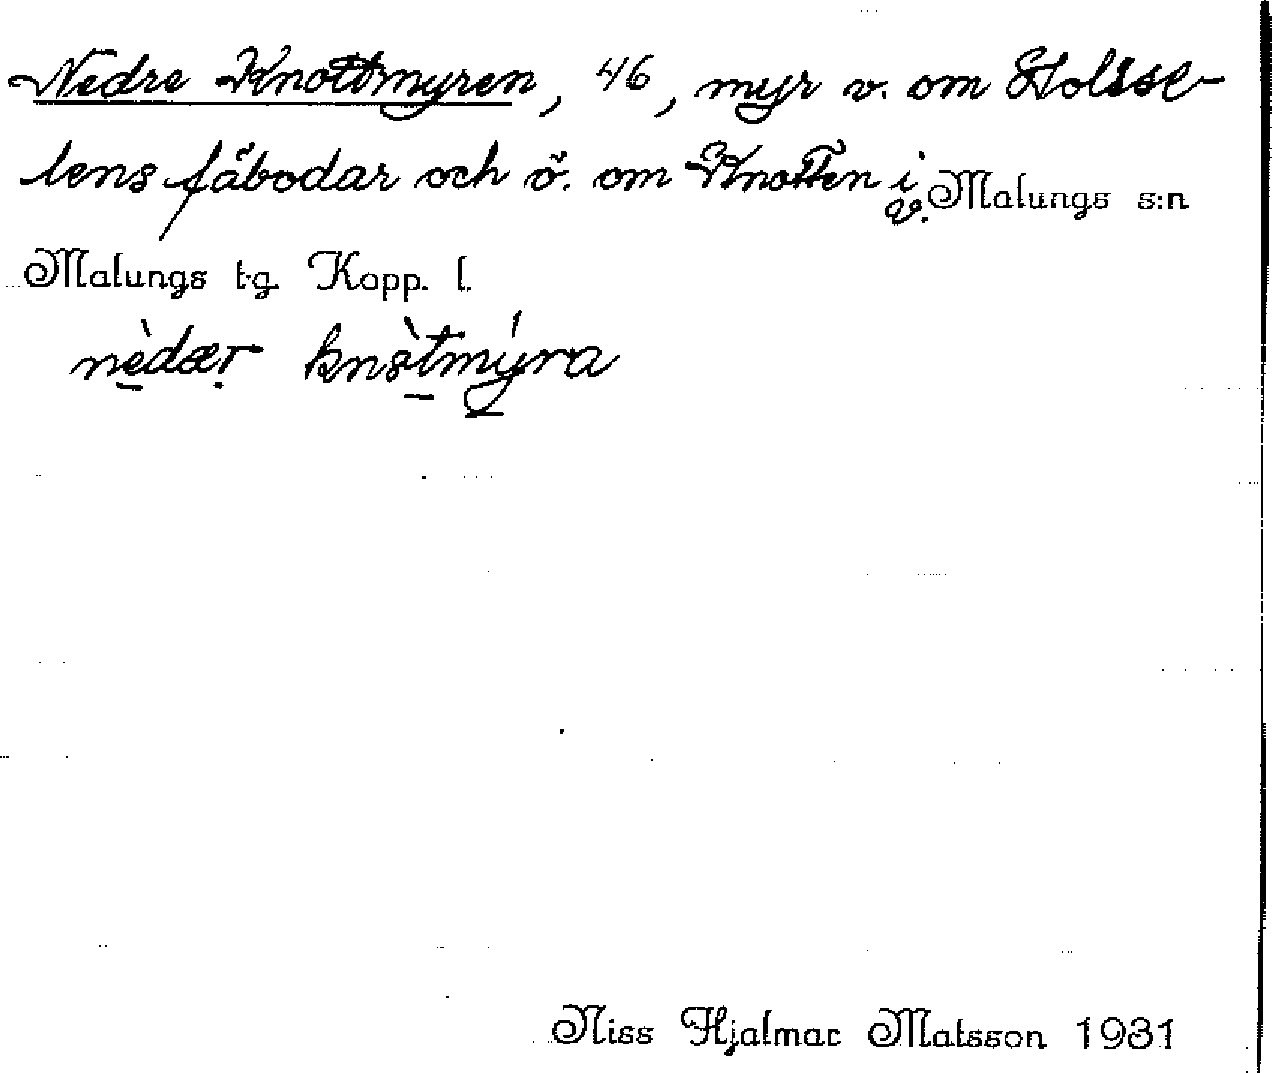 Nedre Knottmyren, 46, myr v. om Holsse-
lens fäbodar och ö. om Knotten i v. Malungs s:n
Malungs tg. Kopp. l.
nèdær knòtmýra
Niss Hjalmar Matsson 1931